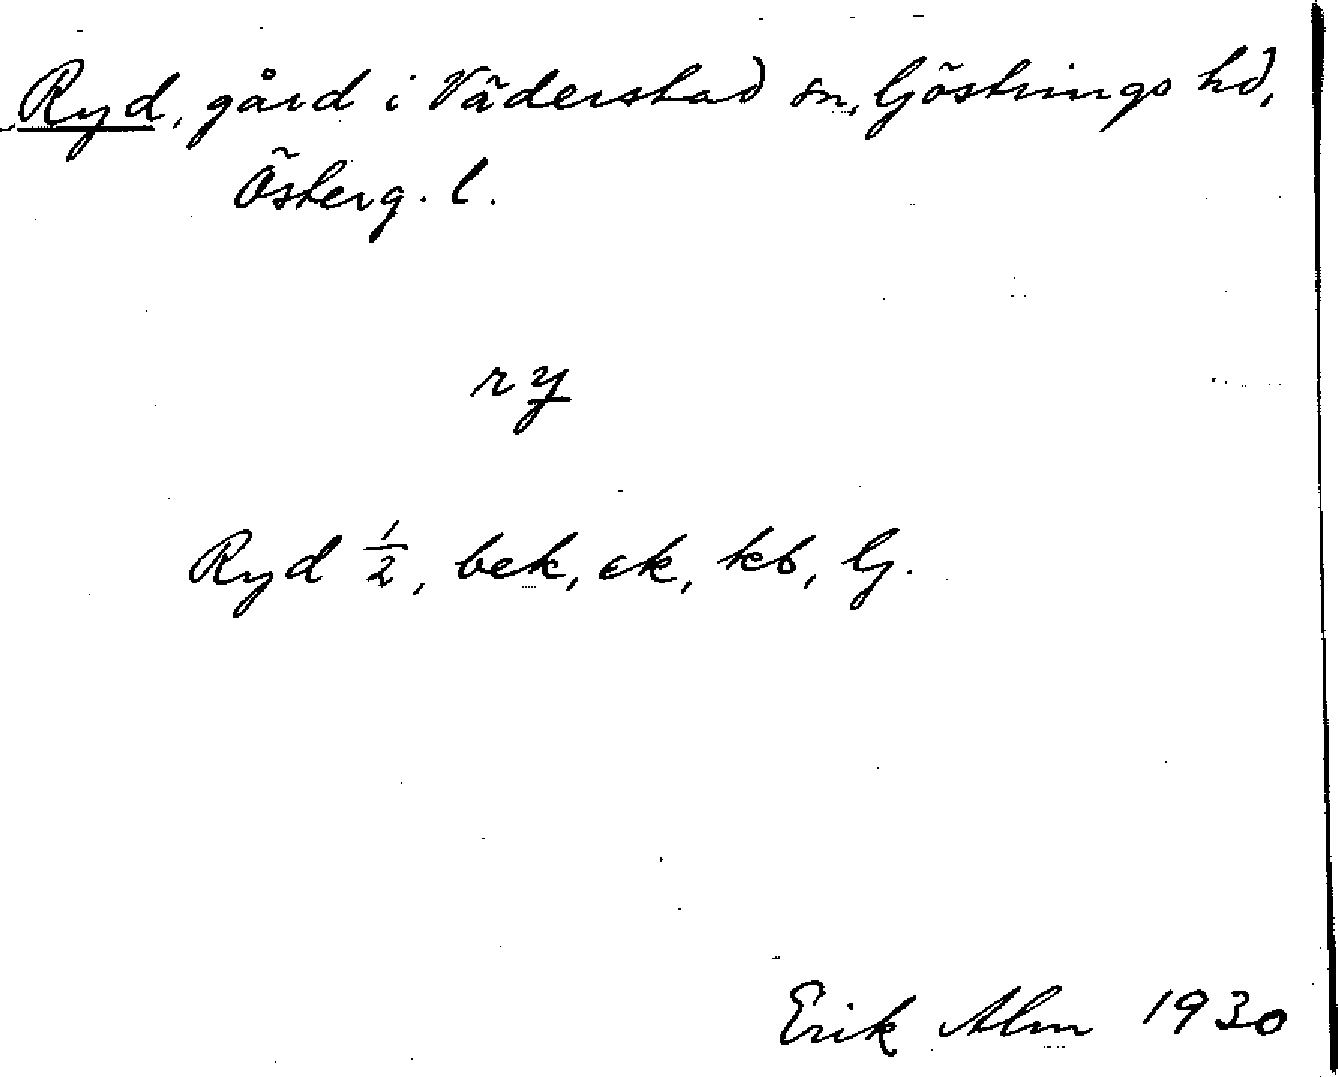 Ryd, gård i Väderstad sn, Göstrings hd,
Österg. l.
ry
Ryd 1/2, bek, ek, kb, Gj.
Erik Alm 1930